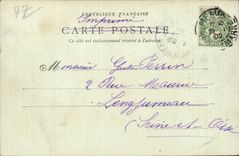 77
RÉPUBLIQUE FRANÇAISE
Imprimé
CARTE POSTALE
Ce côté est exclusivement réservé à l'adresse
Monsieur Gaston Perrin
2 Rue Maurice
Longjumeau
(Seine et Oise